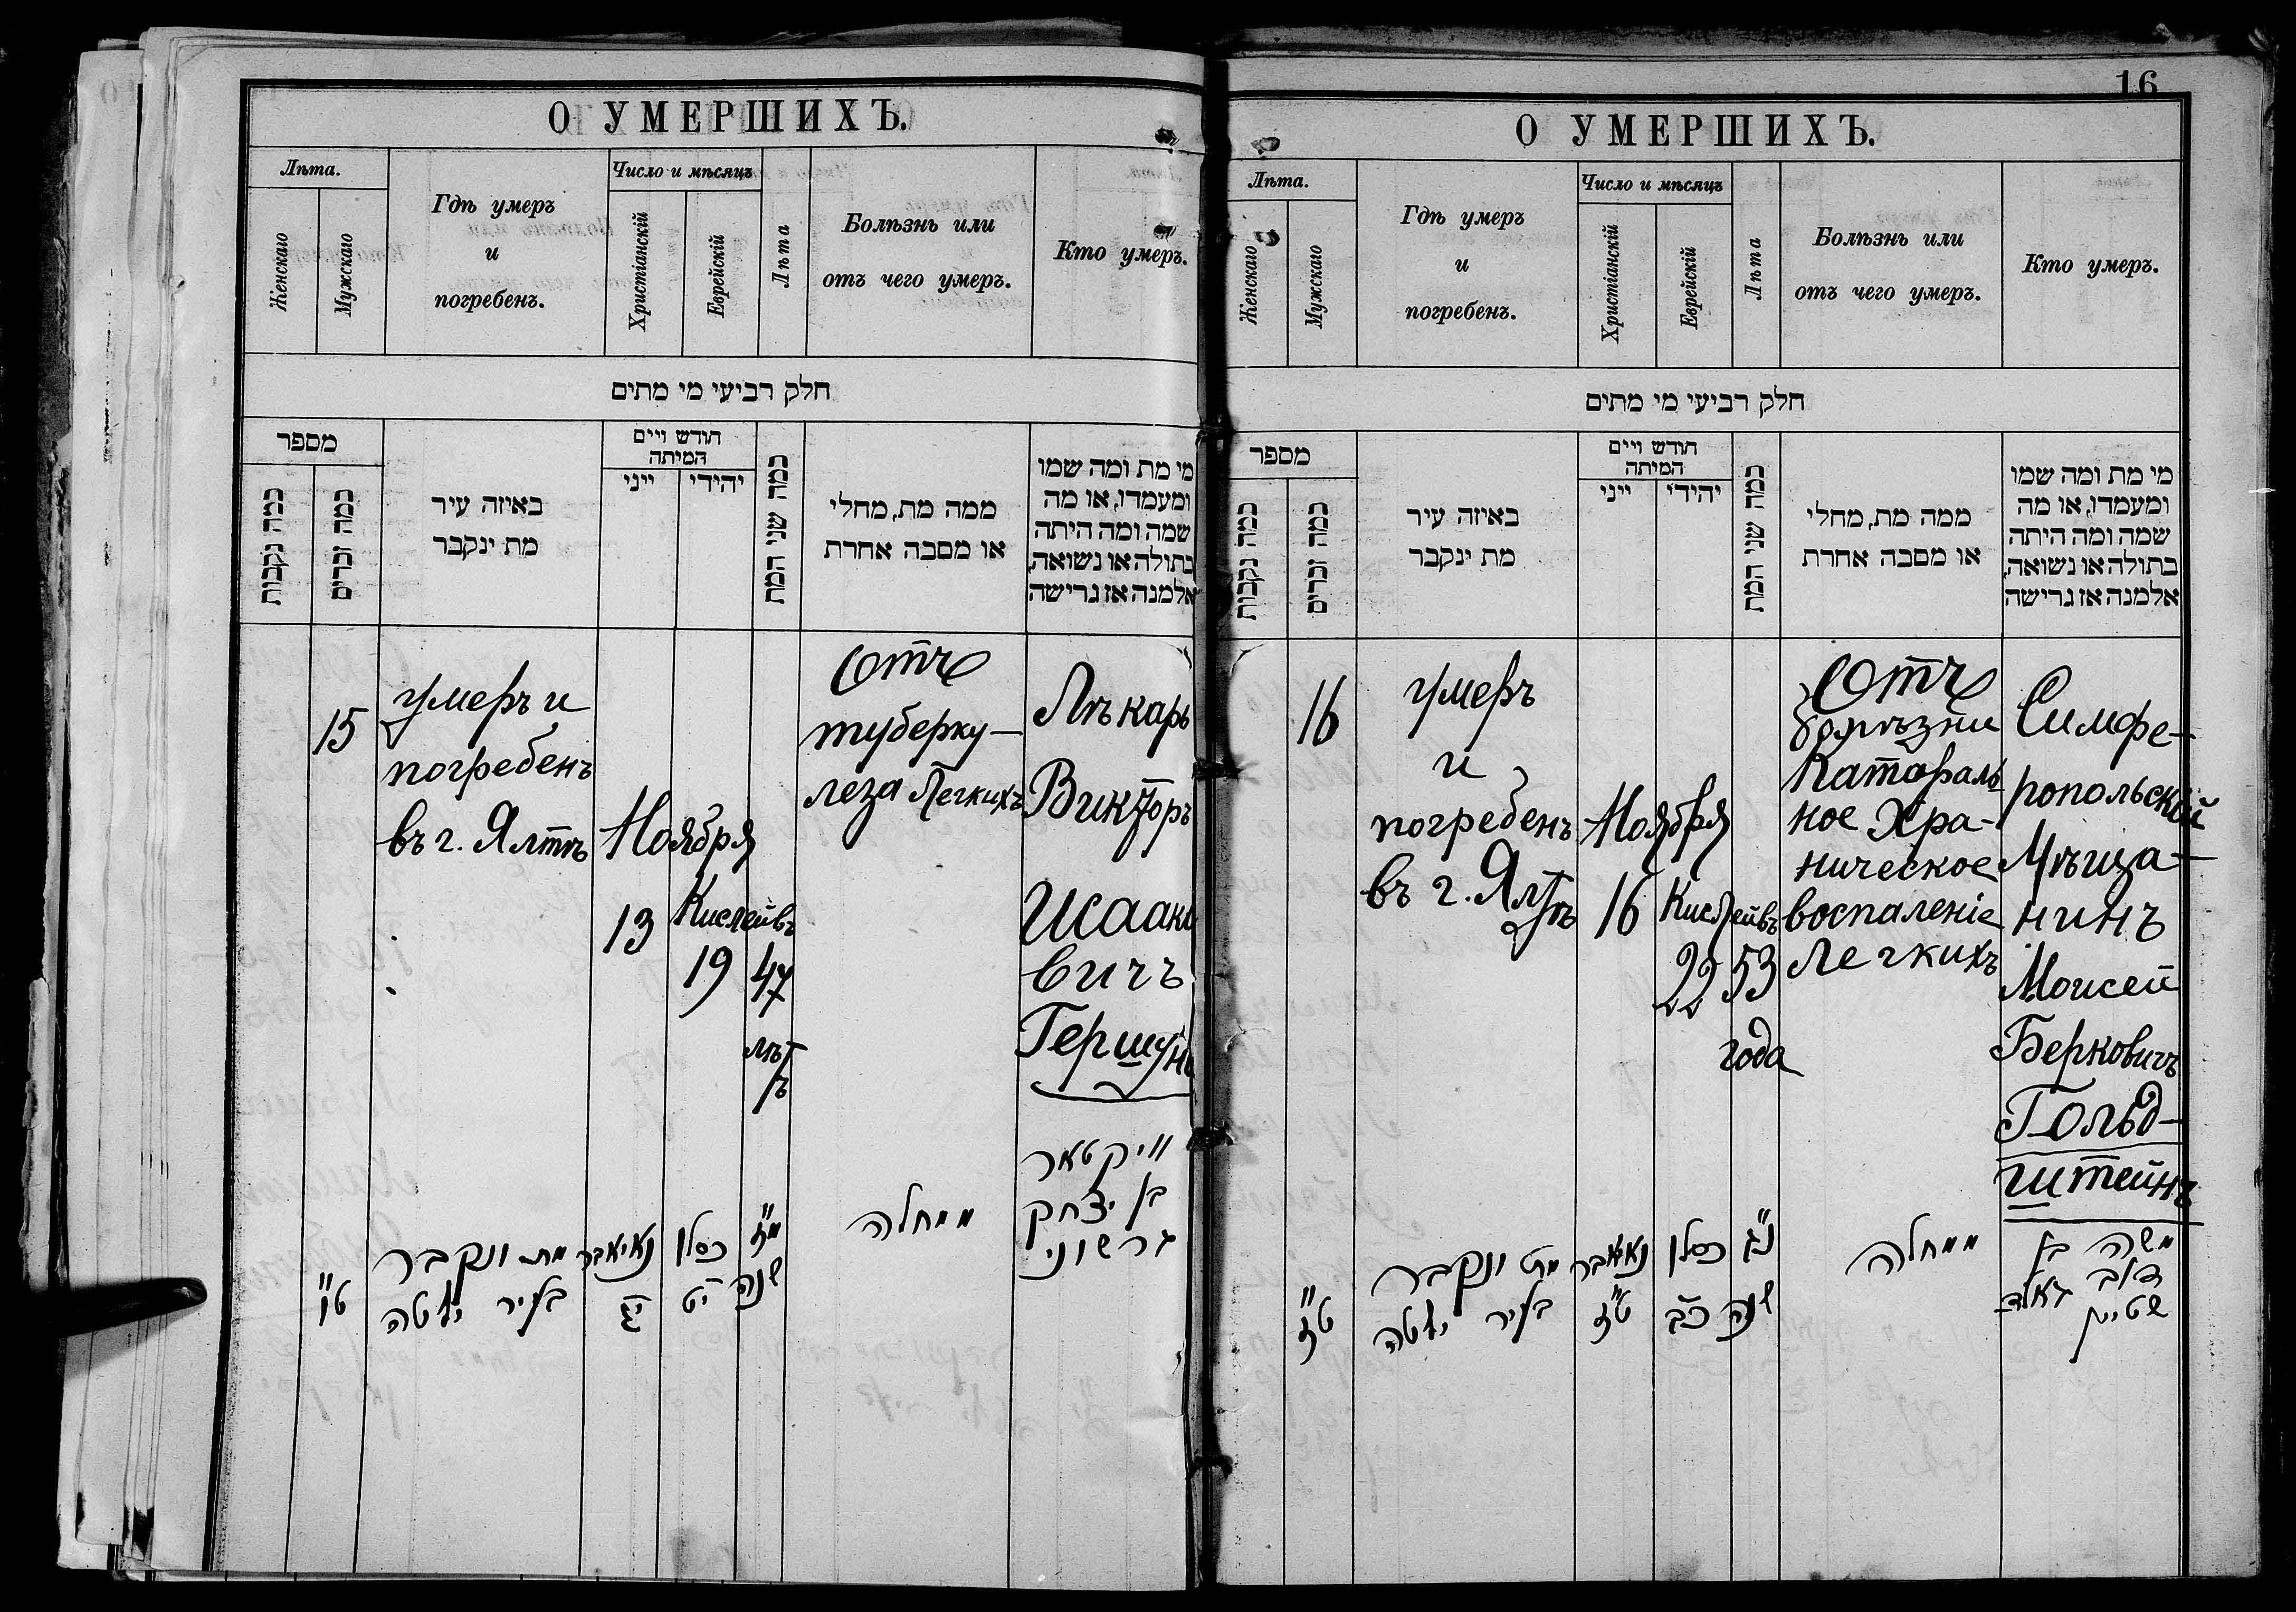 О УМЕРШИХЪ.
Лѣта.
Женскаго
Мужскаго
Гдѣ умеръ
и
погребенъ.
Число и мѣсяцъ
Христіанскій
Еврейскій
Лѣта
Болѣзнь или
отъ чего умеръ.
Кто умеръ.
חלק רביעי מי מתים
מספר
כמה נקבות
כמה זכרים
באיזה עיר
מת ינקבר
חודש ויים
המיתה
ייני
יהידי
כמה שני המת
ממה מת, מחלי
או מסבה אחרת
מי מת ומה שמו
ומעמדו, או מה
שמה ומה היתה
בתולה או נשואה,
אלמנה אז גרישה
15
умеръ и
погребенъ
въ г. Ялтѣ
Ноября
13
Кислейвъ
19
47
лѣт
ъ
Отъ
туберку-
леза Легкихъ
Лѣкарь
Викторъ
Исаако
вичъ
Гершуни
ט"ו
מת ונקבר
בעיר יאלטה
נאיאבר
יג
כסלו
יט
מ"ז
שנה
ממחלה
וויקטאר
בן יצחק
גרשוני
16
О УМЕРШИХЪ.
Лѣта.
Женскаго
Мужскаго
Гдѣ умеръ
и
погребенъ.
Число и мѣсяцъ
Христіанскій
Еврейскій
Лѣта
Болѣзнь или
отъ чего умеръ.
Кто умеръ.
חלק רביעי מי מתים
מספר
כמה נקבות
כמה זכרים
באיזה עיר
מת ינקבר
חודש ויים
המיתה
ייני
יהידי
כמה שני המת
ממה מת, מחלי
או מסבה אחרת
מי מת ומה שמו
ומעמדו, או מה
שמה ומה היתה
בתולה או נשואה,
אלמנה אז גרישה
16
умеръ
и
погребенъ
въ г. Ялтѣ
Ноября
16
Кислейвъ
22
53
года
Отъ
болѣзни
Катораль
ное Хра-
ническое
воспаленіе
Легкихъ
Симфе-
ропольскій
Мѣща-
нинъ
Моисей
Берковичъ
Гольд-
штейнъ
ט"ז
מת ונקבר
בעיר יאלטה
נאיאבר
ט"ז
כסלו
כב
נ"ג
שנה
ממחלה
משה בן
דוב גאלד
שטיין